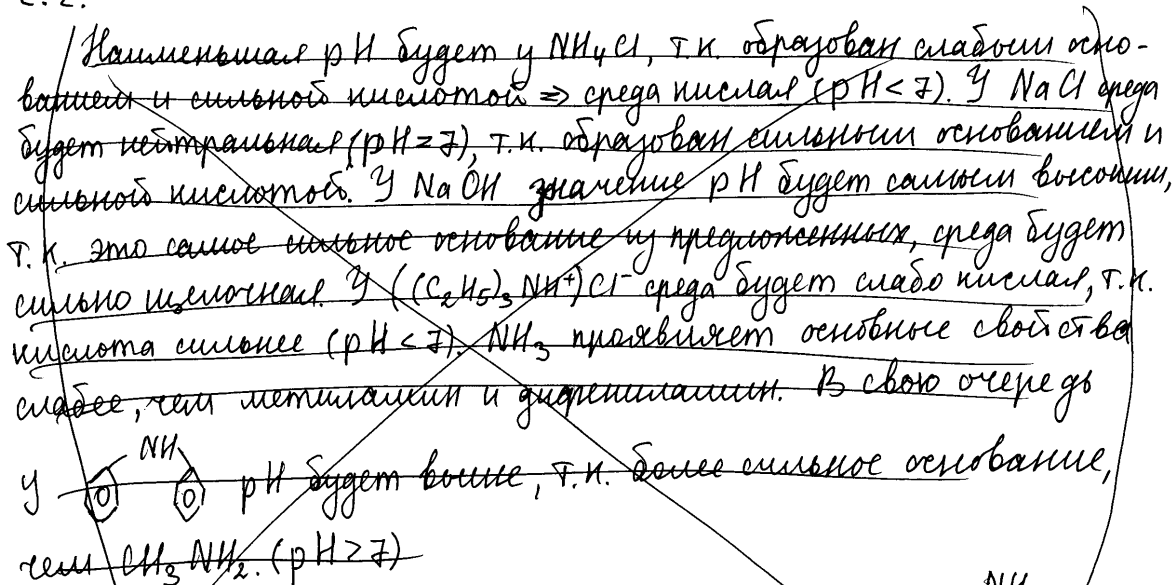 Наименьшая pH будет у NH4Cl, т.к. образован слабым осно-
ванием и сильной кислотой => среда кислая (pH < 7). У NaCl среда
будет нейтральная (pH = 7), т.к. образован сильным основанием и
сильной кислотой. У NaOH значение pH будет самым высоким,
т.к. это самое сильное основание из предложенных, среда будет
сильно щелочная. У ((C2H5)3 NH+)Cl- среда будет слабо кислая, т.к.
кислота сильнее (pH < 7). NH3 проявляет основные свойства
слабее, чем метиламин и дифениламин. В свою очередь
NH
У pH будет выше, т.к. более сильное основание,
чем CH3NH2. (pH > 7)
NH